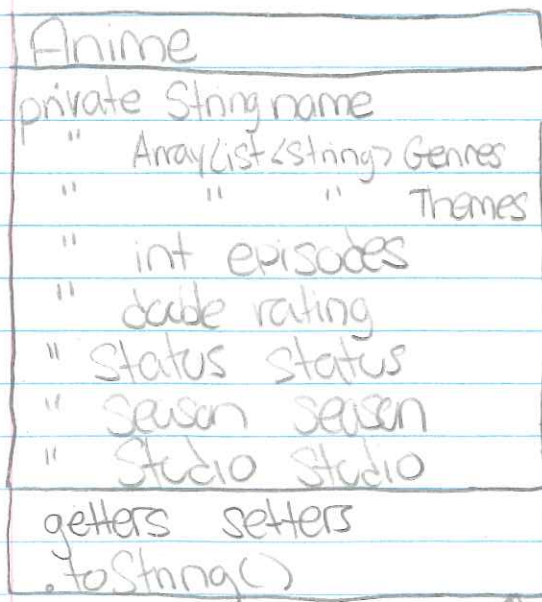 Anime
private String name
" ArrayList<String> Genres
" " " Themes
" int episodes
" double rating
" Status status
" Season season
" Studio studio
getters setters
.toString()